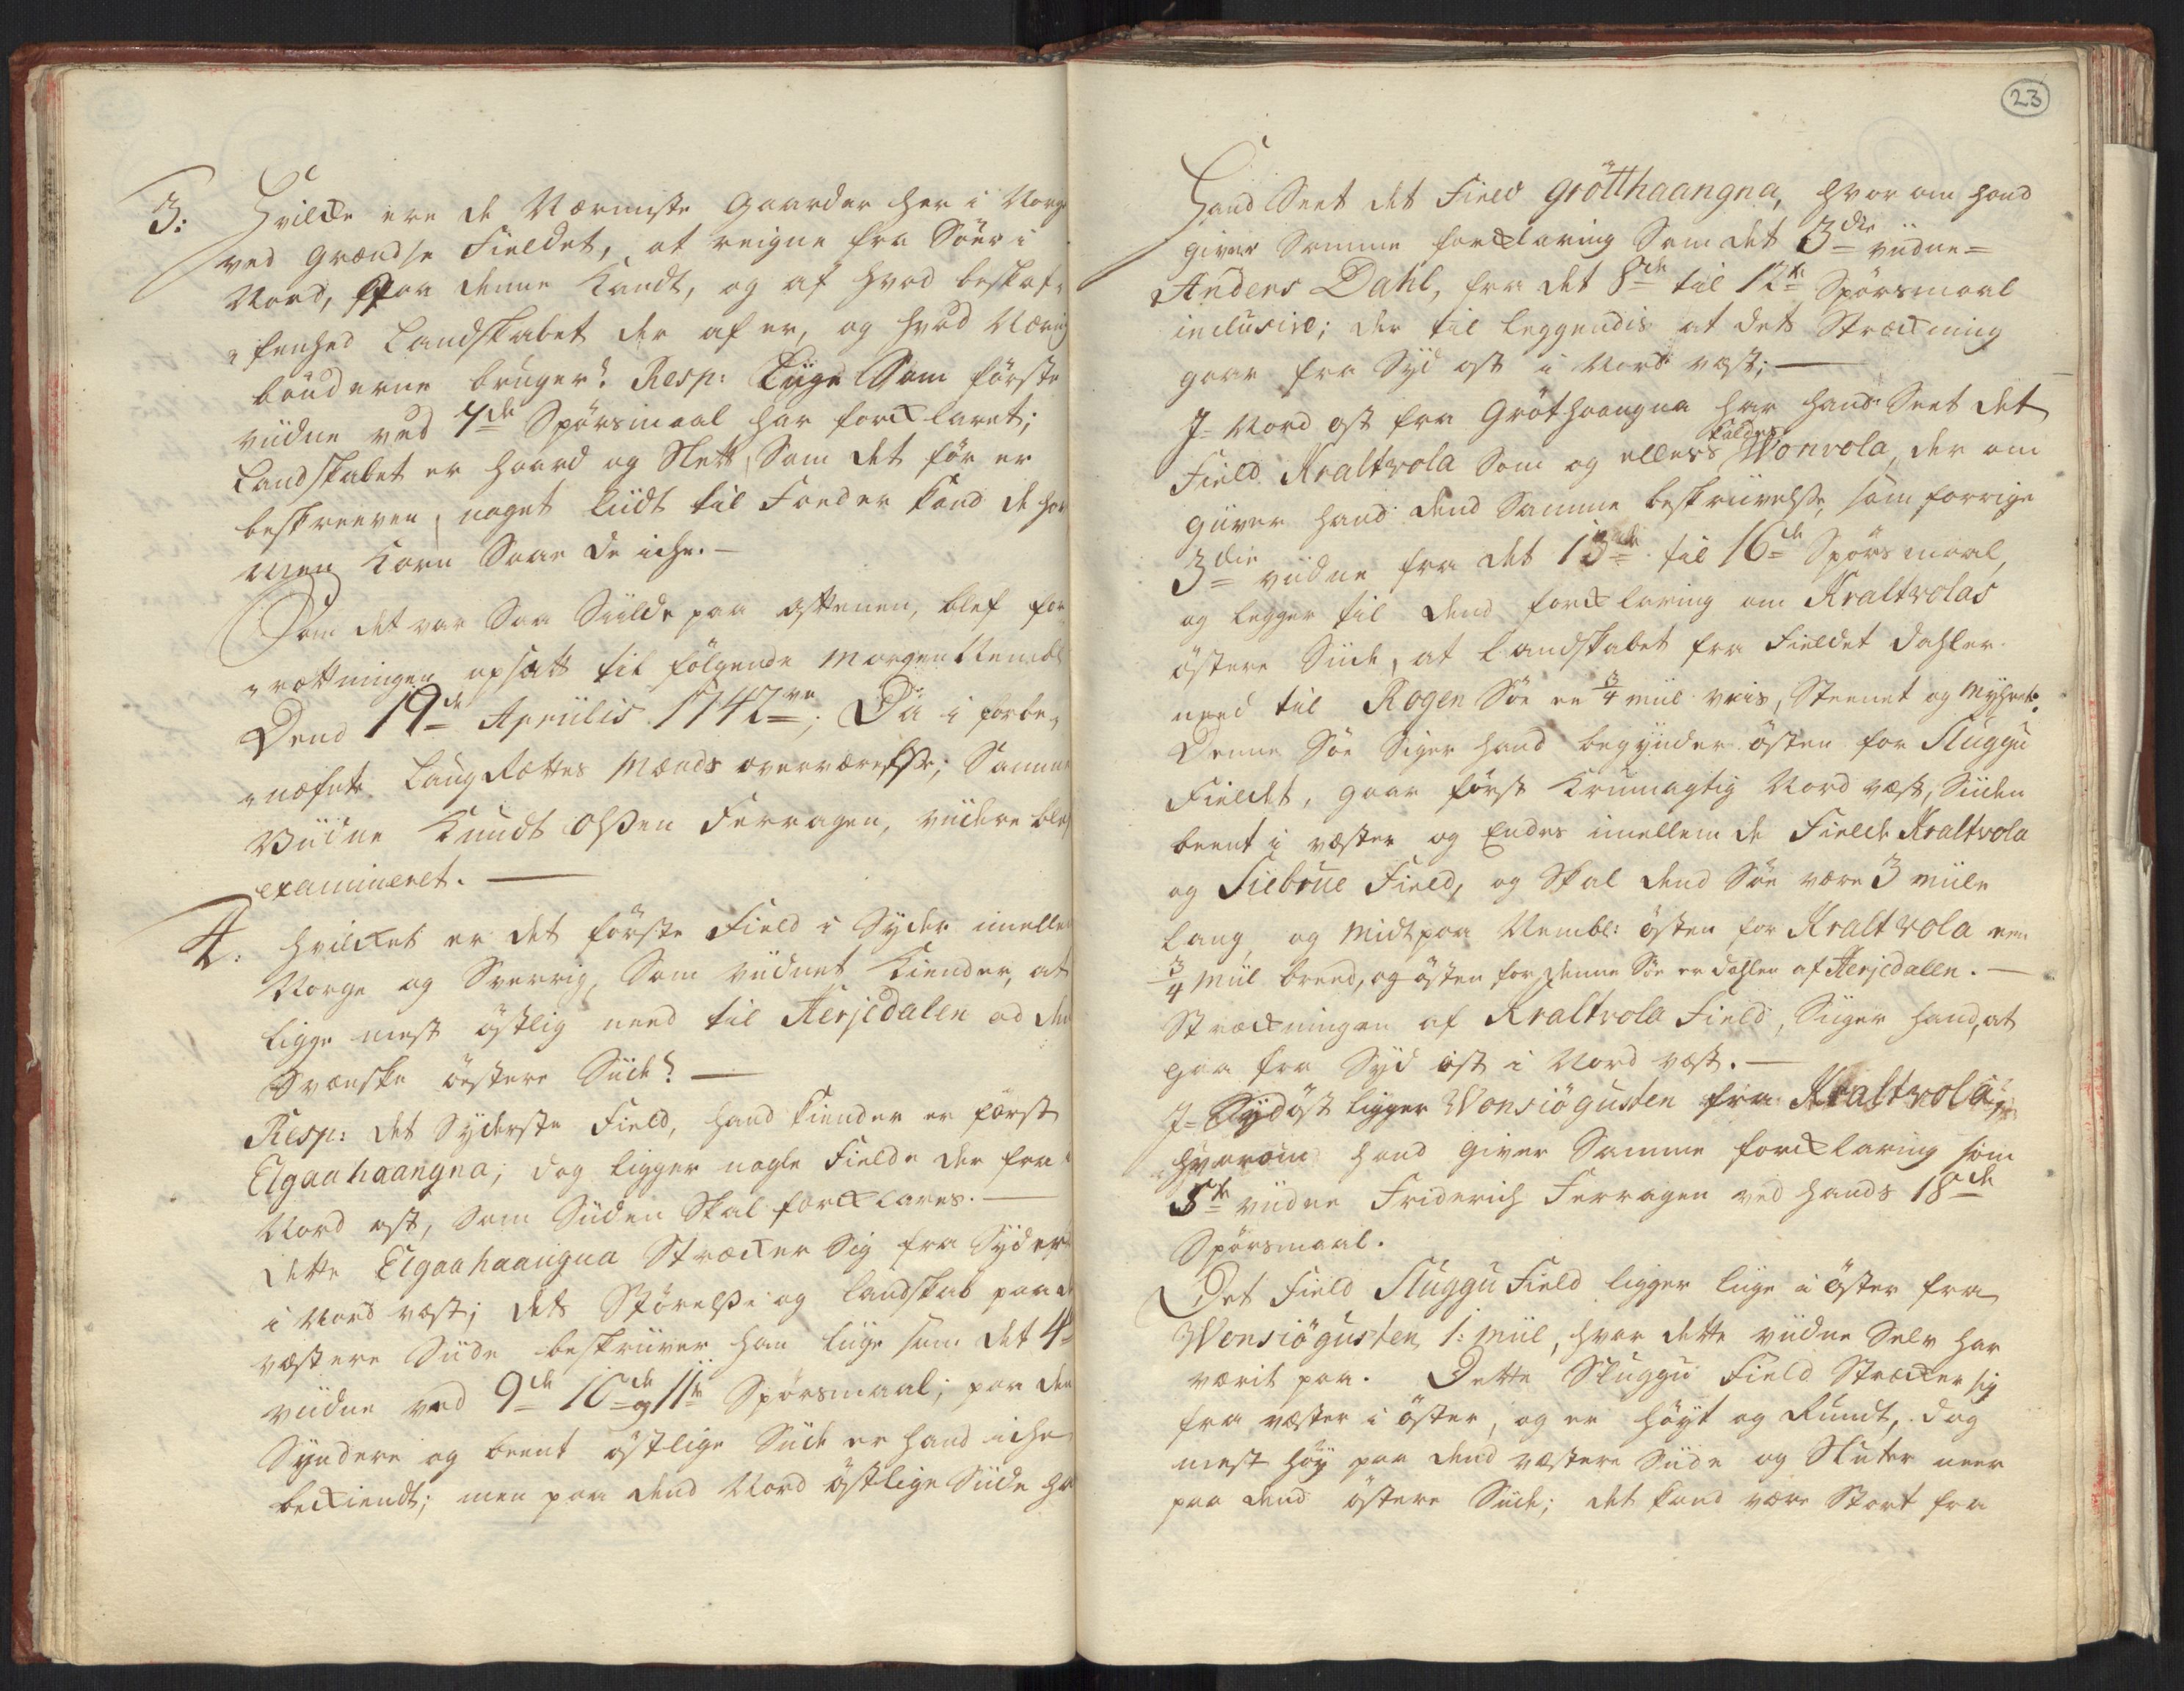 3: Hvilcke ere de Nærmiste gaarder her i Norge
ved grændse Fieldet, at reigne fra Söer i
Nord, paa denne Kandt, og af hvad beskaf-
"fenhed Landskabet der af er, og hvad Næring
bönderne bruger? Resp: Liige Som förste
viidne ved 7de Spörsmaal har forcklaret;
Landskabet er haard og Slett, Som det för er
beskreeven, noget liidt til Foeder kand de har
men Korn Saar de iche. —
Som det var Saa Siilde paa aftenen, blef for-
"rettningen opsatt til fölgende Morgen Nembl
Dend 19de Apriilis 1742ve; Da i forbe-
"næfnte LaugRettes Mænds overværelsse; Samme
Viidne Knudt Olssen Ferragen, viidere blef
examineret. —
4: hvilcket er det förste Field i Syder imellem
Norge og Sverrig, Som viidnet Kiender, at
ligge mest östlig need til Herjedalen ad den
Svenske östere Siide? —
Resp: det Syderste Field, hand kiender er først
Elgaahaangna; dog ligger nogle Fielde der fra
Nord ost, som Siiden Skal forcklares. —
Dette Elgaahaangna Strecker Sig fra Syder
i Nord vest; dets Störelsse og landskab paa de
vestere Siide beskriiver han liige som det 4de
viidne ved 9de 10de og 11te Spörsmaal; paa den
Syndere og beent östlige Siide er hand iche
beckiendt; men paa dend Nord östlige Siide ha
23
Hand Seet det Field Grötthaangna, hvor om hand
giver Samme forcklaring Som det 3die viidne
Anders Dahl, fra det 8de til 12te Spörsmaal
inclusive; der til leggendis at dets Streckning
gaar fra Syd ost i Nord vest; —
J Nord ost fra Gröthaangna har hand Seet det
Field Kraltvola Som og ellers kaldes Wonvola, der om
giiver hand dend Samme beskriivelsse, som forrige
3die viidne fra det 13de til 16de Spörsmaal,
og legger til dend forcklaring om Kraltvolas
östere Siide, at Landskabet fra Fieldet dahler
need til Rogen Söe en 3/4 miil veis, Steenet og Myhret.
Denne Söe Siger hand begynder östen for Sluggu
Fieldet, gaar först Krumagtig Nord vest, Siiden
beent i vester og Endes imellem de Fielde Kraltvola
og Siebrue Field, og Skal dend Söe være 3 miile
lang, og Midt paa Nembl: östen for Kraltvola een
3/4 Miil breed, og östen for denne Söe er dahlen af Herjedalen. —
Streckningen af Kraltvola Field, Siiger hand, at
gaa fra Syd ost i Nord vest. —
J Sydöst ligger Wonsiögusten fra Kraltvola,
hvorom hand giver Samme forcklaring som
5te viidne Friderich Ferragen ved hands 18de
Spörsmaal.
Det Field Sluggu Field ligger liige i öster fra
Wonsiögusten 1: Miil, hvor dette viidne Selv har
verit paa. Dette Sluggu Field Strecker sig
fra vester i öster, og er höyt og Rundt, dog
mest höy paa dend vestere Siide og Sluter neer
paa dend östere Siide; det kand være Stort fra